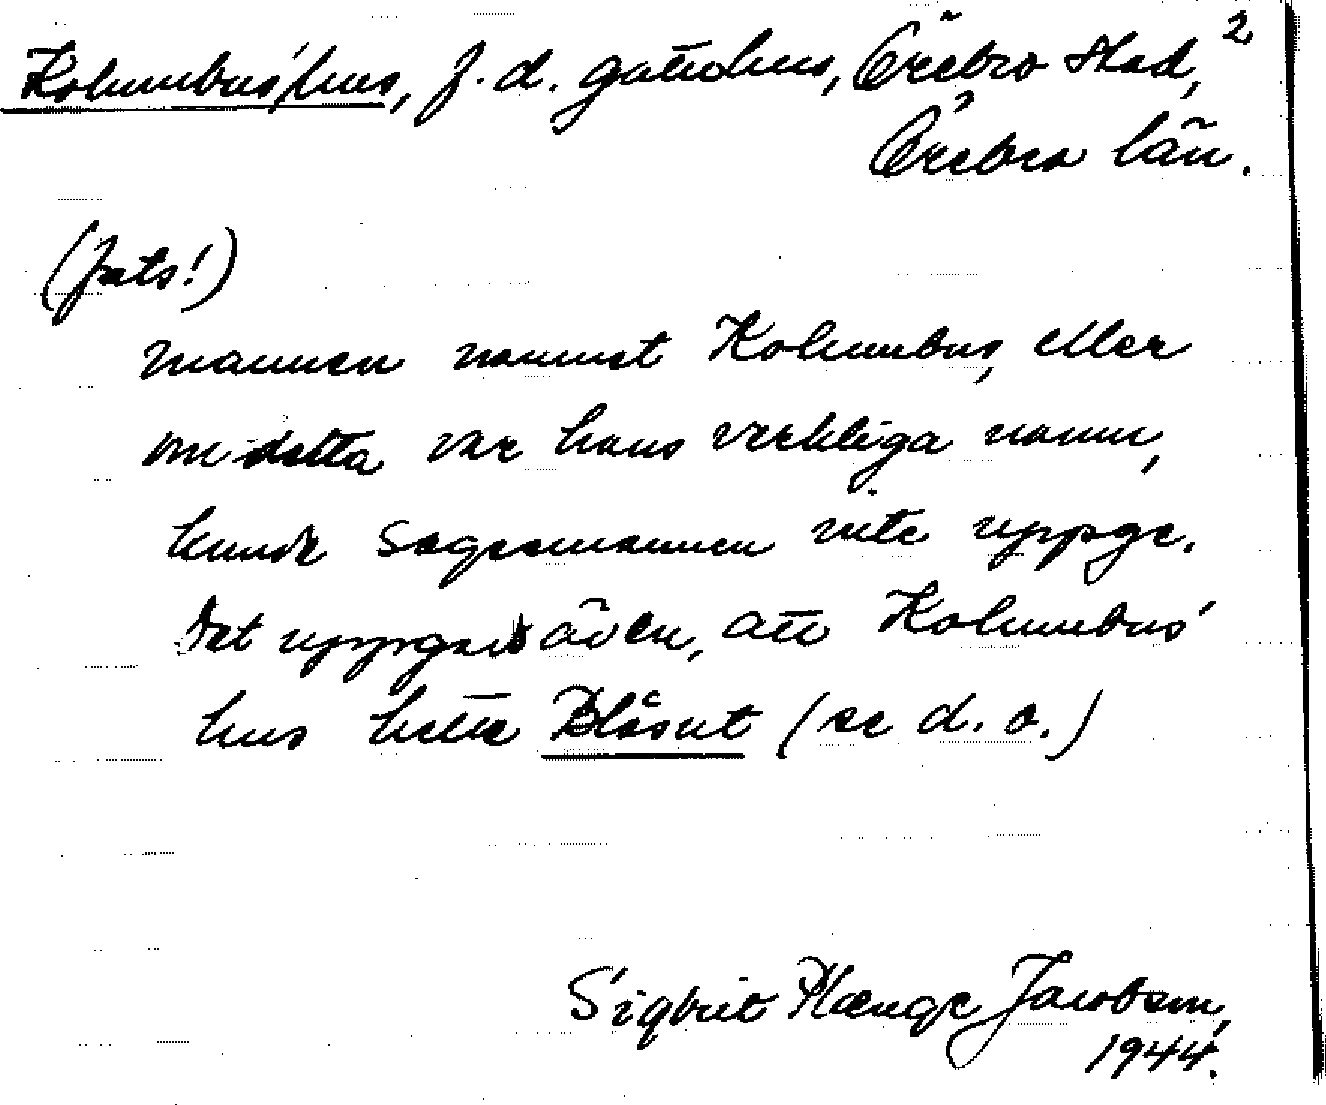 2
Kolumbus' hus, f. d. gatuhus, Örebro stad,
Örebro län.
(forts!)
mannen namnet Kolumbus, eller
om detta var hans verkliga namn,
kunde sagesmannen inte uppge.
Det uppgavs även, att Kolumbus'
hus hette Blåsut (se d. o.)
Sigbrit Plænge Jacobson,
1944.